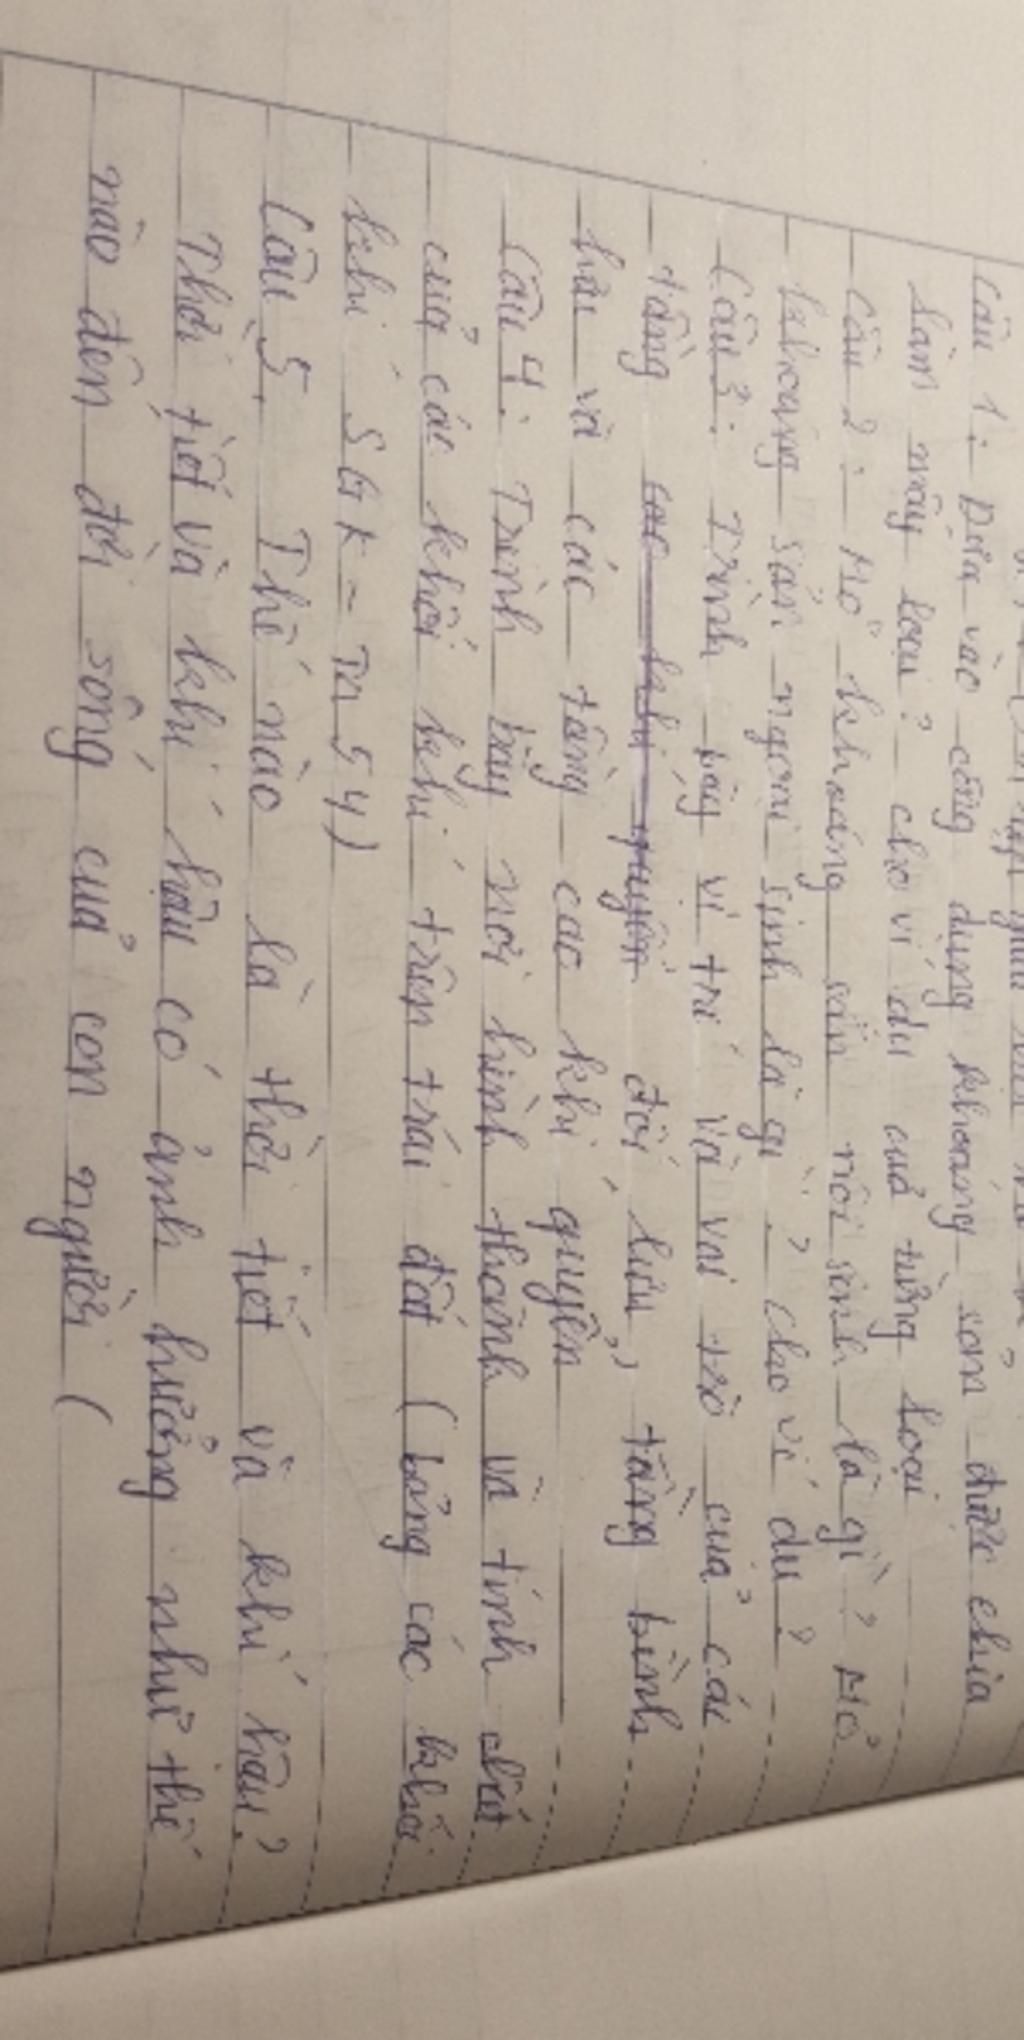 Câu 1: Dựa vào công dụng khoáng sản được chia
làm mấy loại? cho ví dụ của từng loại
Câu 2: Mỏ khoáng sản nội sinh là gì? Mỏ
khoáng sản ngoại sinh là gì? Cho ví dụ?
Câu 3: Trình bày vị trí và vai trò của các
tầng đối lưu, tầng bình
lưu và các tầng cao khí quyển
Câu 4: Trình bày nơi hình thành và tính chất
của các khối khí trên trái đất (bảng các khối
khí SGK - Tr 54)
Câu 5. Thế nào là thời tiết và khí hậu?
Thời tiết và khí hậu có ảnh hưởng như thế
nào đến đời sống của con người (